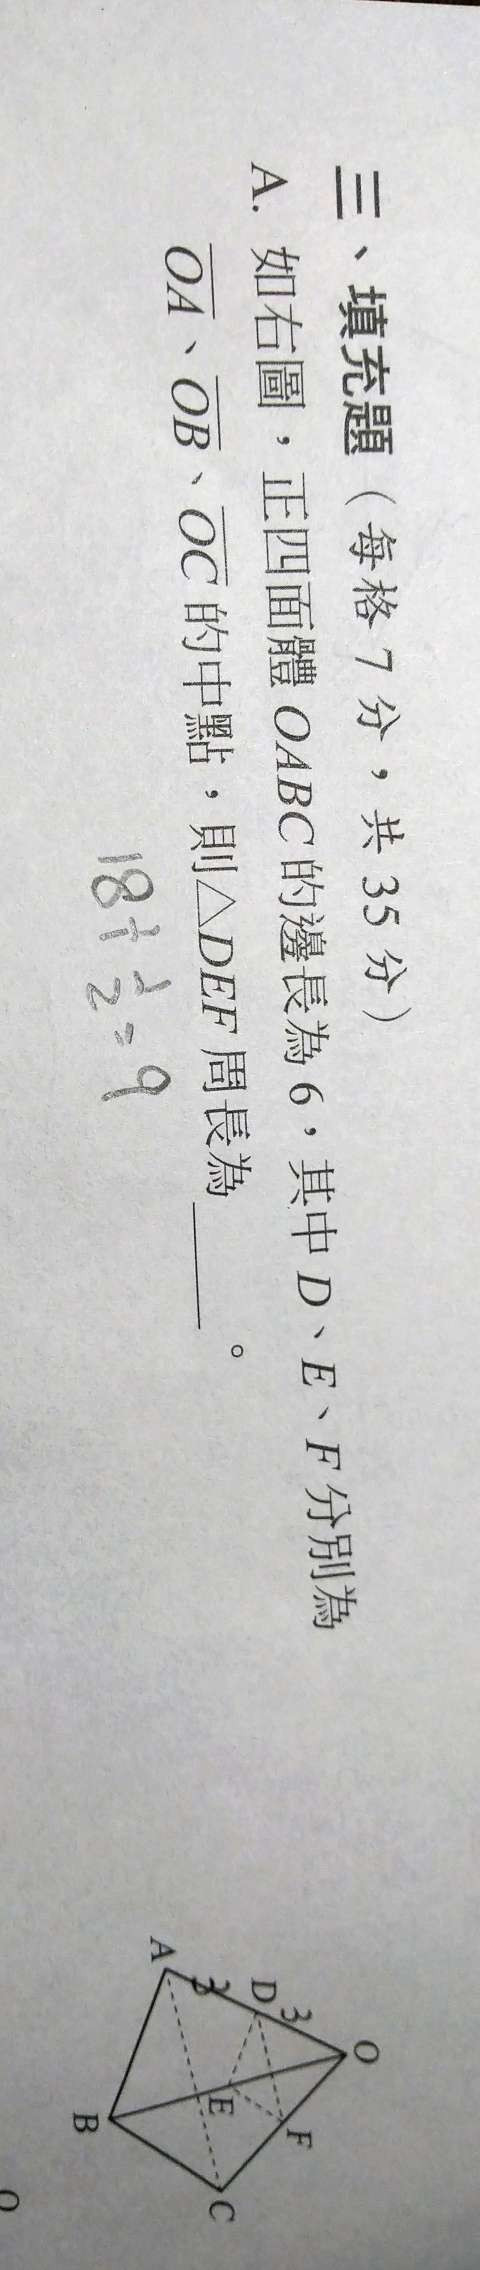 三、填充題(每格7分,共35分)
A. 如右圖,正四面體OABC的邊長為6,其中D、E、F分別為
OA、OB、OC的中點,則△DEF周長為____。
18÷½=9
O
3
D
3
F
A
E
C
B